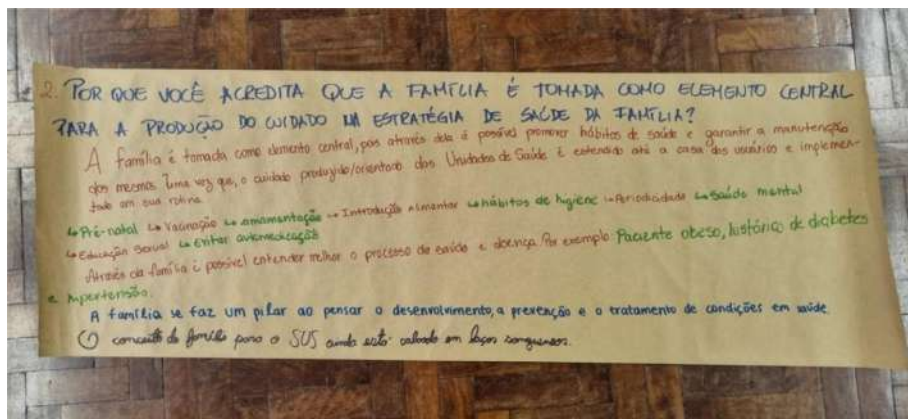 2. POR QUE VOCÊ ACREDITA QUE A FAMÍLIA É TOMADA COMO ELEMENTO CENTRAL
PARA A PRODUÇÃO DO CUIDADO NA ESTRATÉGIA DE SAÚDE DA FAMÍLIA?
A família é tomada como elemento central, pois através dela é possível promover hábitos de saúde e garantir a manutenção
dos mesmos. Uma vez que, o cuidado produzido/orientado das Unidades de Saúde é estendido até a casa dos usuários e implemen-
tado em sua rotina.
↳ Pré-natal ↳ Vacinação ↳ amamentação ↳ Introdução alimentar ↳ hábitos de higiene ↳ Periodicidade ↳ Saúde mental
↳ Educação Sexual ↳ Evitar automedicação
Através da família é possível entender melhor o processo de saúde e doença. Por exemplo: Paciente obeso, histórico de diabetes
e hipertensão.
A família se faz um pilar ao pensar o desenvolvimento, a prevenção e o tratamento de condições em saúde.
O conceito de família para o SUS ainda está calcado em laços sanguíneos.